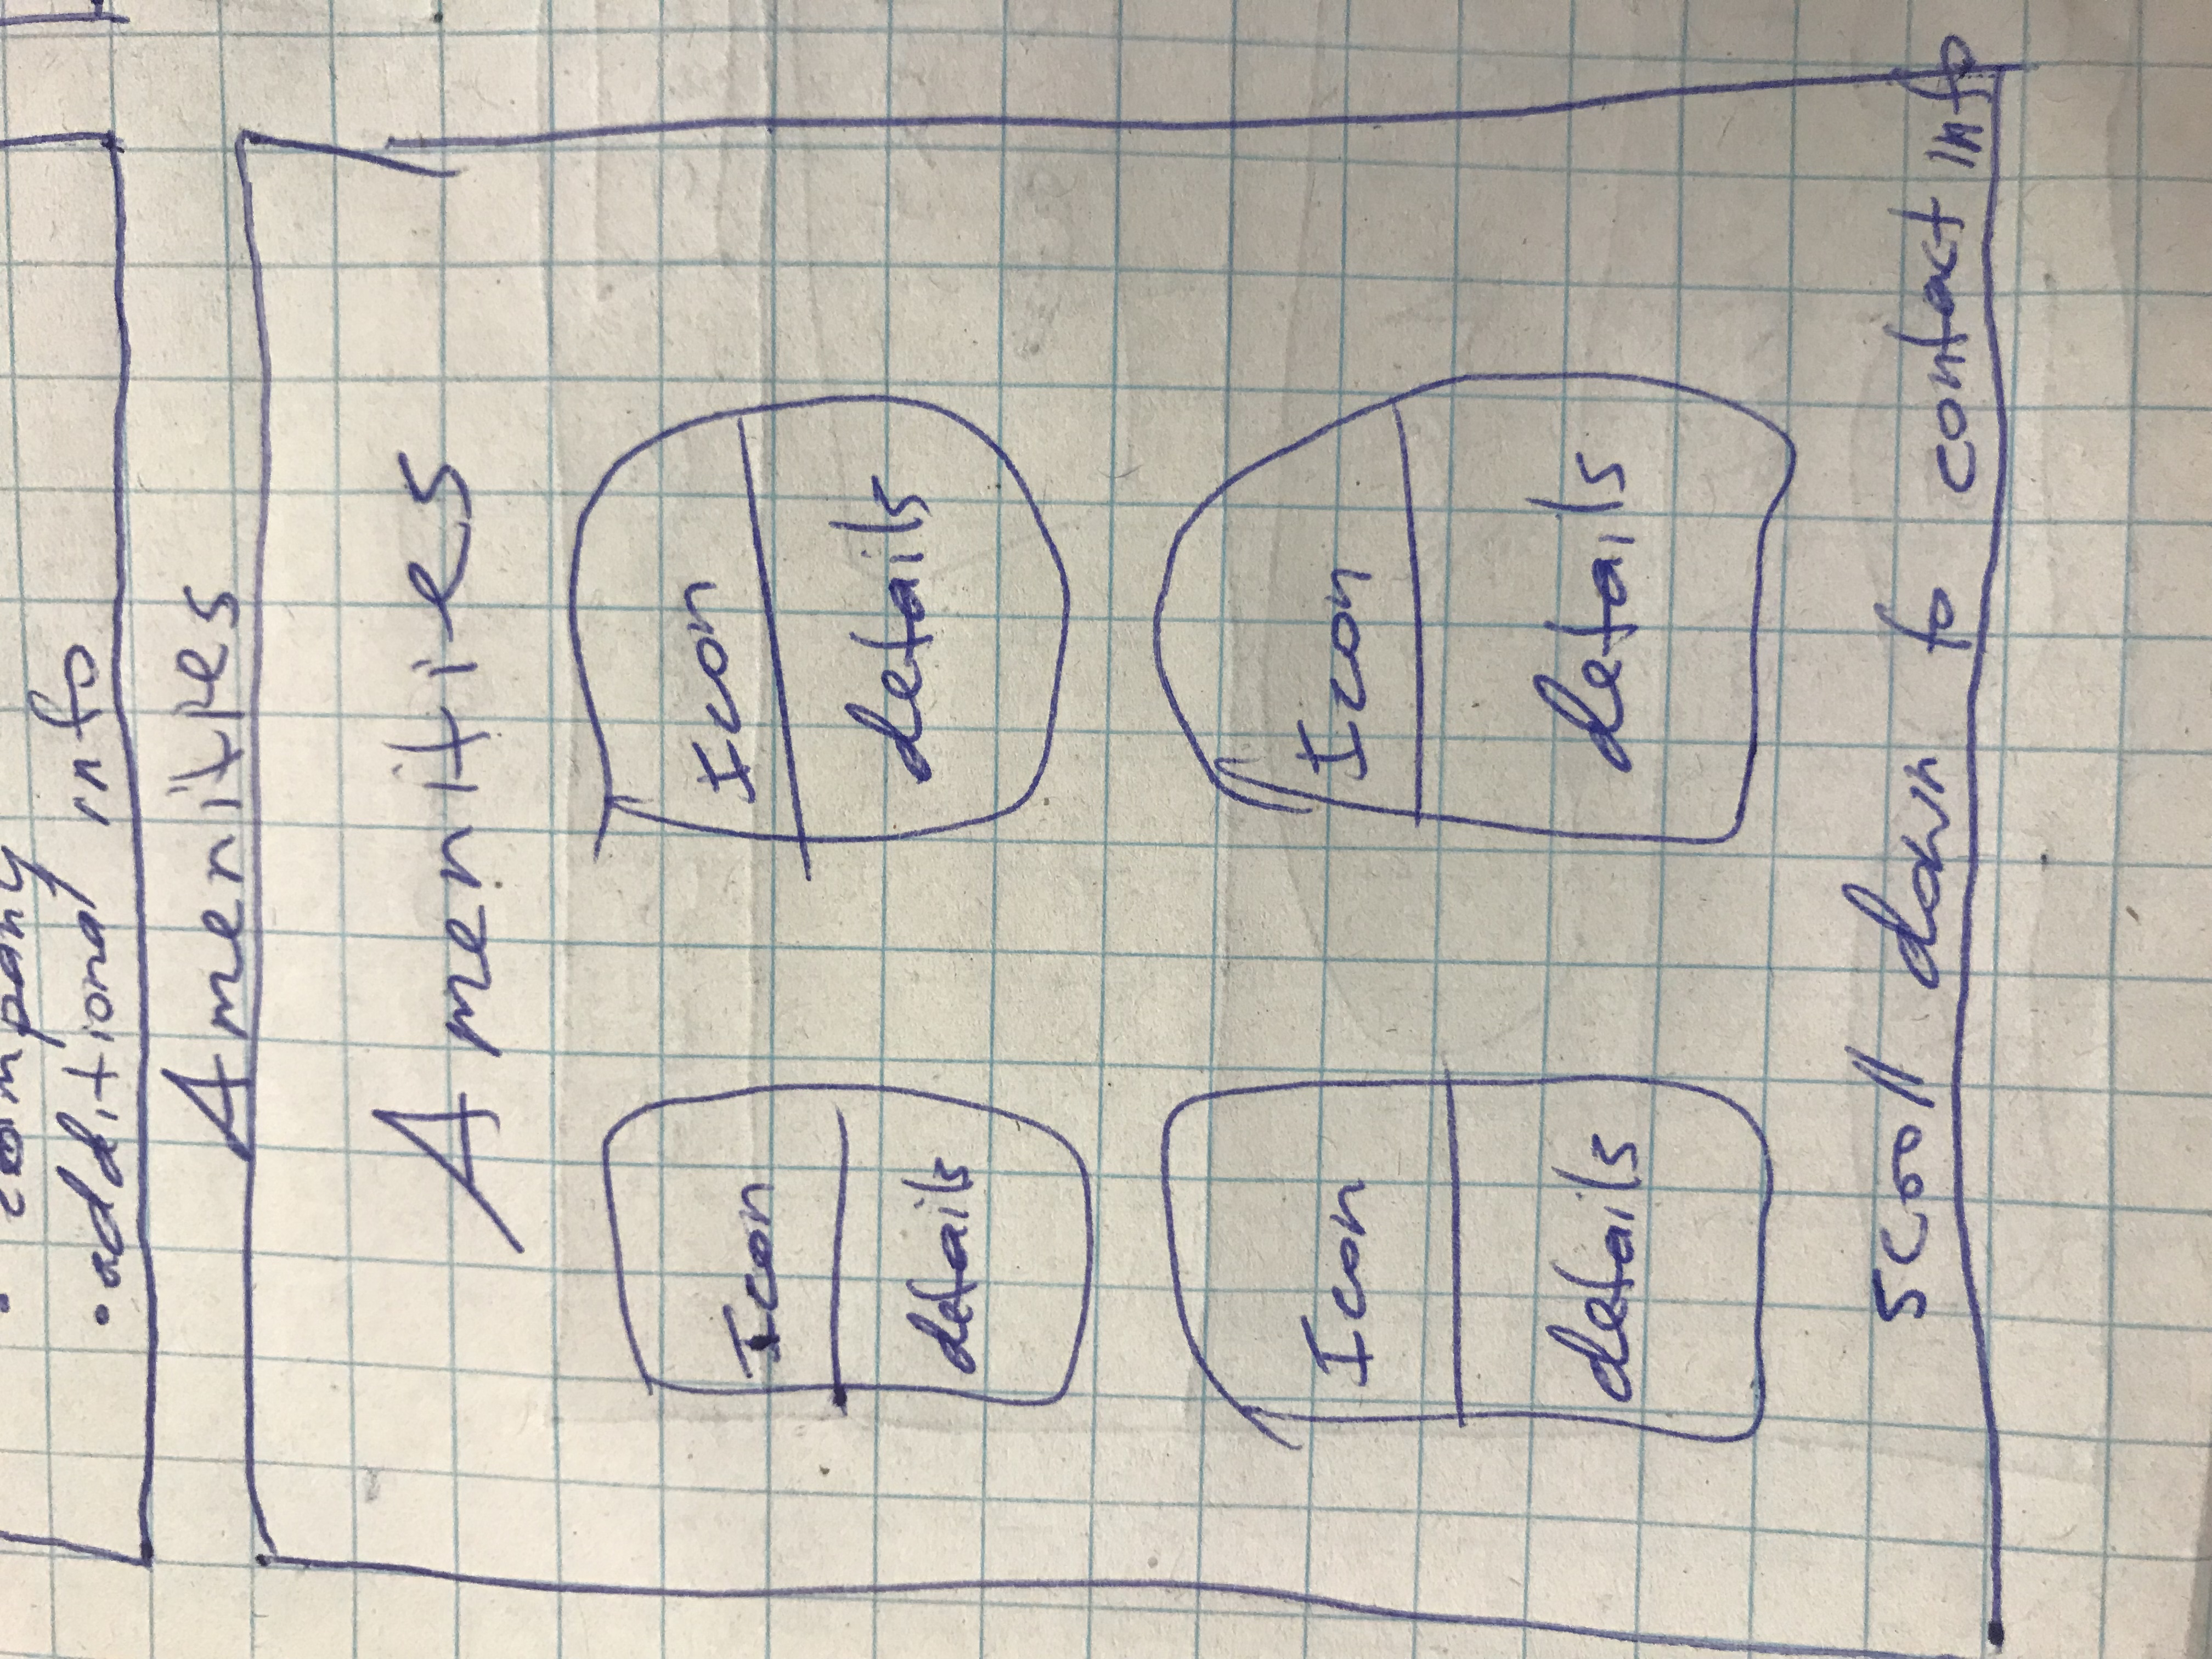 • company
• additional info
Amenities
Amenities
Icon Icon
details details
Icon Icon
details details
scroll down to contact info